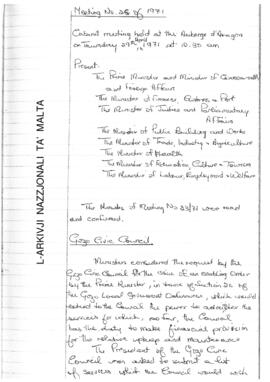 Meeting No. 28 of 1971
Cabinet meeting held at the Auberge d'Aragon
on Thursday 29th April 1971 at 10.30 am
Present.
The Prime Minister and Minister of Commonwealth
and Foreign Affairs
The Minister of Finance, Customs & Port
The Minister of Justice and Parliamentary
Affairs
The Minister of Public Building and Works
The Minister of Trade, Industry & Agriculture
The Minister of Health
The Minister of Education, Culture & Tourism
The Minister of Labour, Employment & Welfare
The Minutes of Meeting No 23/71 were read
and confirmed.
Gozo Civic Council.
Ministers considered the request by the
Gozo Civic Council for the issue of an enabling order
by the Prime Minister, in terms of section of
the Gozo Local Government Ordinance, which would
extend to the Council the power to administer the
services for which, so far, the Council
has the duty to make financial provision
for the relative upkeep and maintenance
The President of the Gozo Civic
Council was asked to submit a list
of services which the Council would wish
L-ARKIVJI NAZZJONALI TA' MALTA